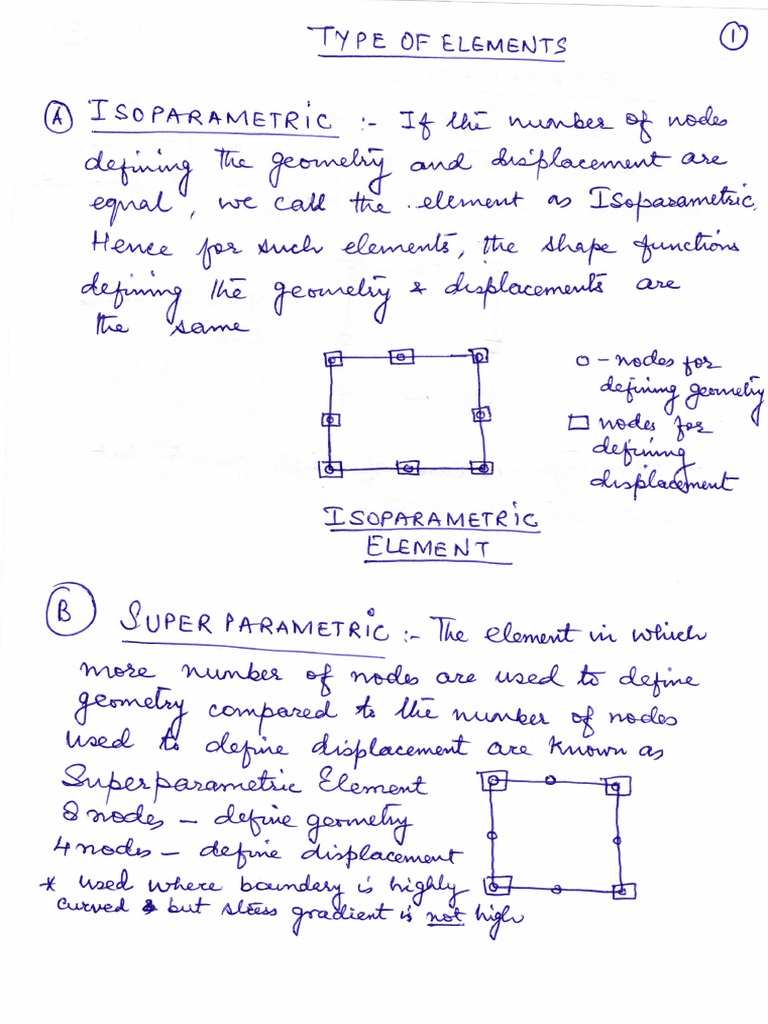 TYPE OF ELEMENTS
1
A ISOPARAMETRIC :- If the number of nodes
defining the geometry and displacement are
equal, we call the element as Isoparametric.
Hence for such elements, the shape functions
defining the geometry & displacements are
the same
o - nodes for
defining geometry
□ nodes for
defining
displacement
ISOPARAMETRIC
ELEMENT
B SUPER PARAMETRIC :- The element in which
more number of nodes are used to define
geometry compared to the number of nodes
used to define displacement are known as
Superparametric Element
8 nodes - define geometry
4 nodes - define displacement
* used where boundary is highly
curved & but stress gradient is not high